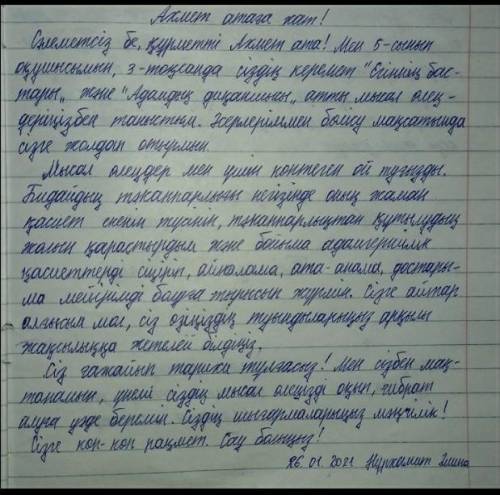 Ахмет атаға хат!
Сәлеметсіз бе, құрметті Ахмет ата! Мен 5-сынып
оқушысымын, 3-тоқсанда сіздің керемет "Егіннің бас-
тары„ және "Адамдық диқаншысы„ атты мысал өлең-
деріңізбен таныстым. Әсерлеріммен бөлісу мақсатында
сізге жолдап отырмын.
Мысал өлеңдер мен үшін көптеген ой туғызды.
Бидайдың тәкаппарлығы негізінде оның жаман
қасиет екенін түсініп, тәкаппарлықтан құтылудың
жолын қарастырдым және бойыма адамгершілік
қасиеттерді сіңіріп, айналама, ата-анама, достары-
ма мейірімді болуға тырысып жүрмін. Сізге айтар
алғысым мол, сіз өзіңіздің туындыларыңыз арқылы
жақсылыққа жетелей білдіңіз.
Сіз ғажайып тарихи тұлғасыз! Мен сізбен мақ-
танамын, үнемі сіздің мысал өлеңіңізді оқып, ғибрат
алуға уәде беремін. Сіздің шығармаларыңыз мәңгілік!
Сізге көп-көп рақмет. Сау болыңыз!
26.01.2021 Нұрхамит